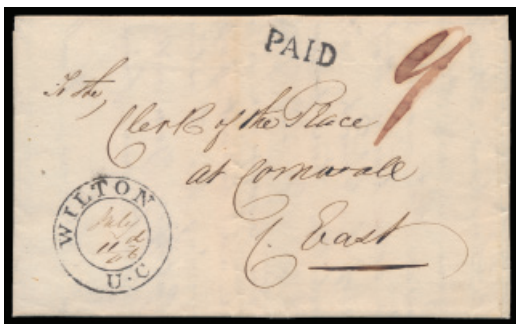 PAID
9
To the,
Clerk of the Peace
at Cornwall
C. East
WILTON
July
11
46
U.C